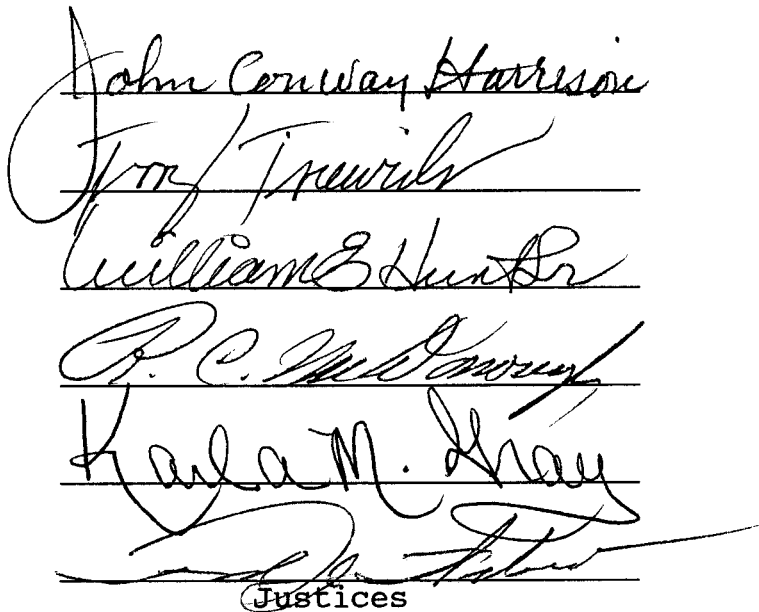 John Conway Harrison
Trieweiler
William E Hunt Sr
R. C. McDonough
Karla M. Gray
Justices